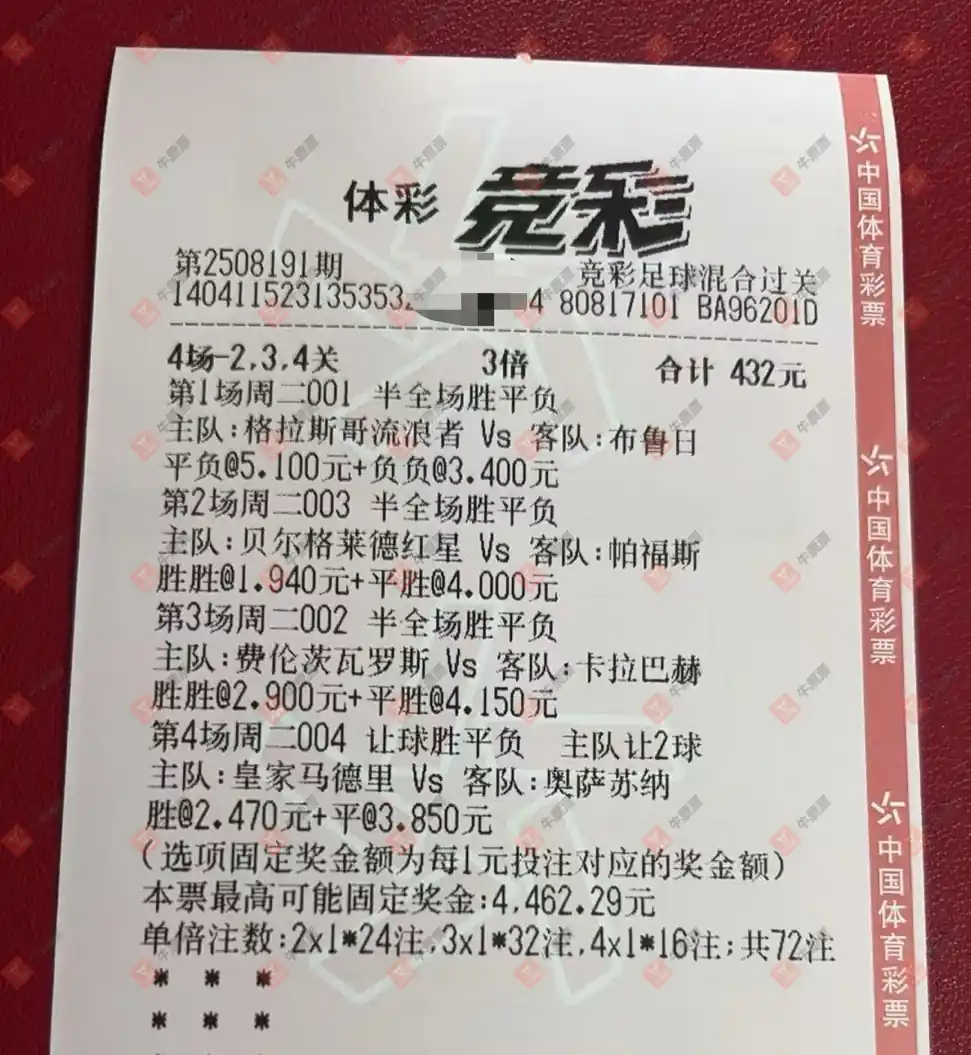 体彩 竞彩
第2508191期 竞彩足球混合过关
140411523135353 4 80817101 BA96201D
4场-2,3,4关 3倍 合计 432元
第1场周二001 半全场胜平负
主队:格拉斯哥流浪者 Vs 客队:布鲁日
平负@5.100元+负负@3.400元
第2场周二003 半全场胜平负
主队:贝尔格莱德红星 Vs 客队:帕福斯
胜胜@1.940元+平胜@4.000元
第3场周二002 半全场胜平负
主队:费伦茨瓦罗斯 Vs 客队:卡拉巴赫
胜胜@2.900元+平胜@4.150元
第4场周二004 让球胜平负 主队让2球
主队:皇家马德里 Vs 客队:奥萨苏纳
胜@2.470元+平@3.850元
(选项固定奖金额为每1元投注对应的奖金额)
本票最高可能固定奖金:4,462.29元
单倍注数:2x1*24注,3x1*32注,4x1*16注;共72注
* * *
* * *
中国体育彩票
中国体育彩票
中国体育彩票